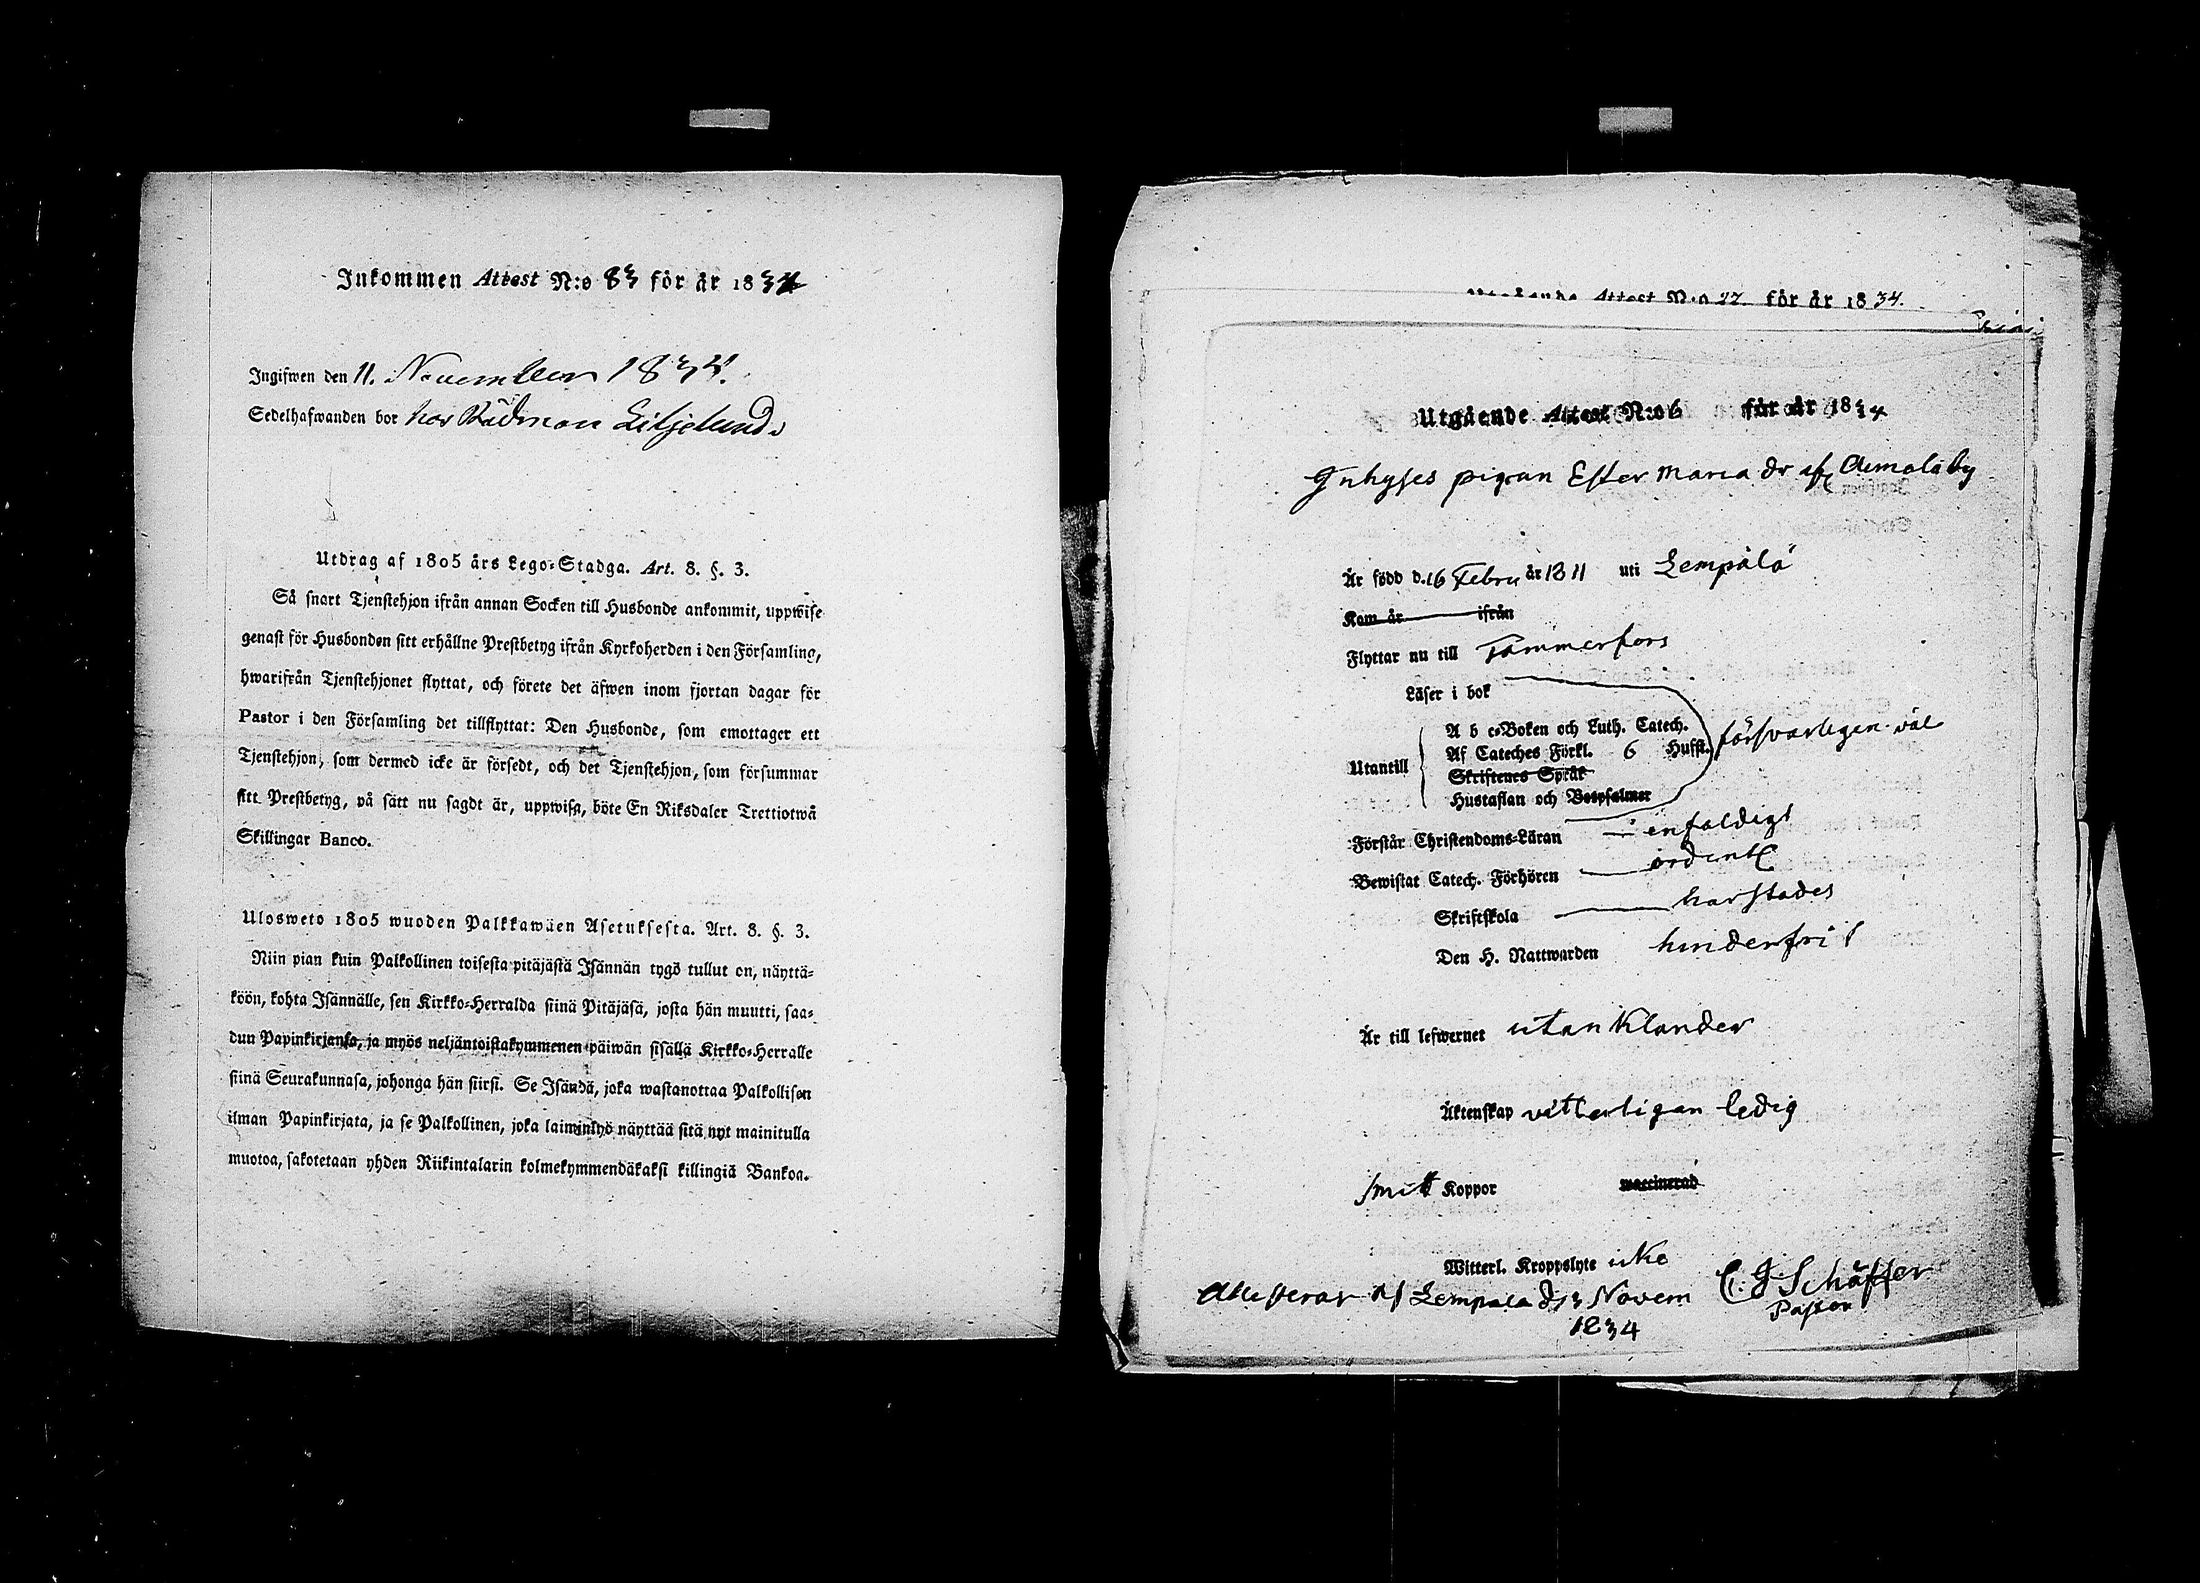 Inkommen Attest N:o 83 för år 1834
Ingifwen den 11. November 1834.
Sedelhafwanden bor hos Rådman Liljelunds
Utdrag af 1805 års Lego-Stadga. Art. 8. §. 3.
Så snart Tjenstehjon ifrån annan Socken till Husbonde ankommit, uppwise
genast för Husbonden sitt erhållne Prestbetyg ifrån Kyrkoherden i den Församling,
hwarifrån Tjenstehjonet flyttat, och förete det äfwen inom fjortan dagar för
Pastor i den Församling det tillflyttat: Den Husbonde, som emottager ett
Tjenstehjon, som dermed icke är försedt, och det Tjenstehjon, som försummar
sitt Prestbetyg, på sätt nu sagdt är, uppwisa, böte En Riksdaler Trettiotwå
Skillingar Banco.
Ulosweto 1805 wuoden Palkkawäen Asetuksesta. Art. 8. §. 3.
Niin pian kuin Palkollinen toisesta pitäjästä Isännän tygö tullut on, näyttä-
köön, kohta Isännälle, sen Kirkko-Herralda siinä Pitäjäsä, josta hän muutti, saa-
dun Papinkirjansa, ja myös neljäntoistakymmenen päiwän sisällä Kirkko-Herralle
siinä Seurakunnasa, johonga hän siirsi. Se Isändä, joka wastanottaa Palkollisen
ilman Papinkirjata, ja se Palkollinen, joka laiminlyö näyttää sitä nyt mainitulla
muotoa, sakotetaan yhden Riikintalarin kolmekymmendäkaksi killingiä Bankoa.
Attest N:o 27 för år 1834.
Utgående Attest N:o 6 för år 1834
Inhyses pigan Ester Maria dr af
Är född d. 16 Febru år 1811 uti Lempälä
Kom år ifrån
Flyttar nu till Tammerfors
Läser i bok
A b c-Boken och Luth. Catech.
Utantill Af Cateches Förkl. 6 Hufst. försvarligen väl
Skriftenes Språk
Hustaflan och Botpsalmer
Förstår Christendoms-Läran enfaldigt
Bewistat Catech. Förhören ordentl
Skriftskola har stades
Den H. Nattwarden hinderfri
Är till lefwernet utan Klander
Äktenskap vitterligen ledig
Koppor waccinerad
Witterl. Kroppslyte icke
Attesterar af Lempälä d Novem C. G Schäffer
1834 Pastor